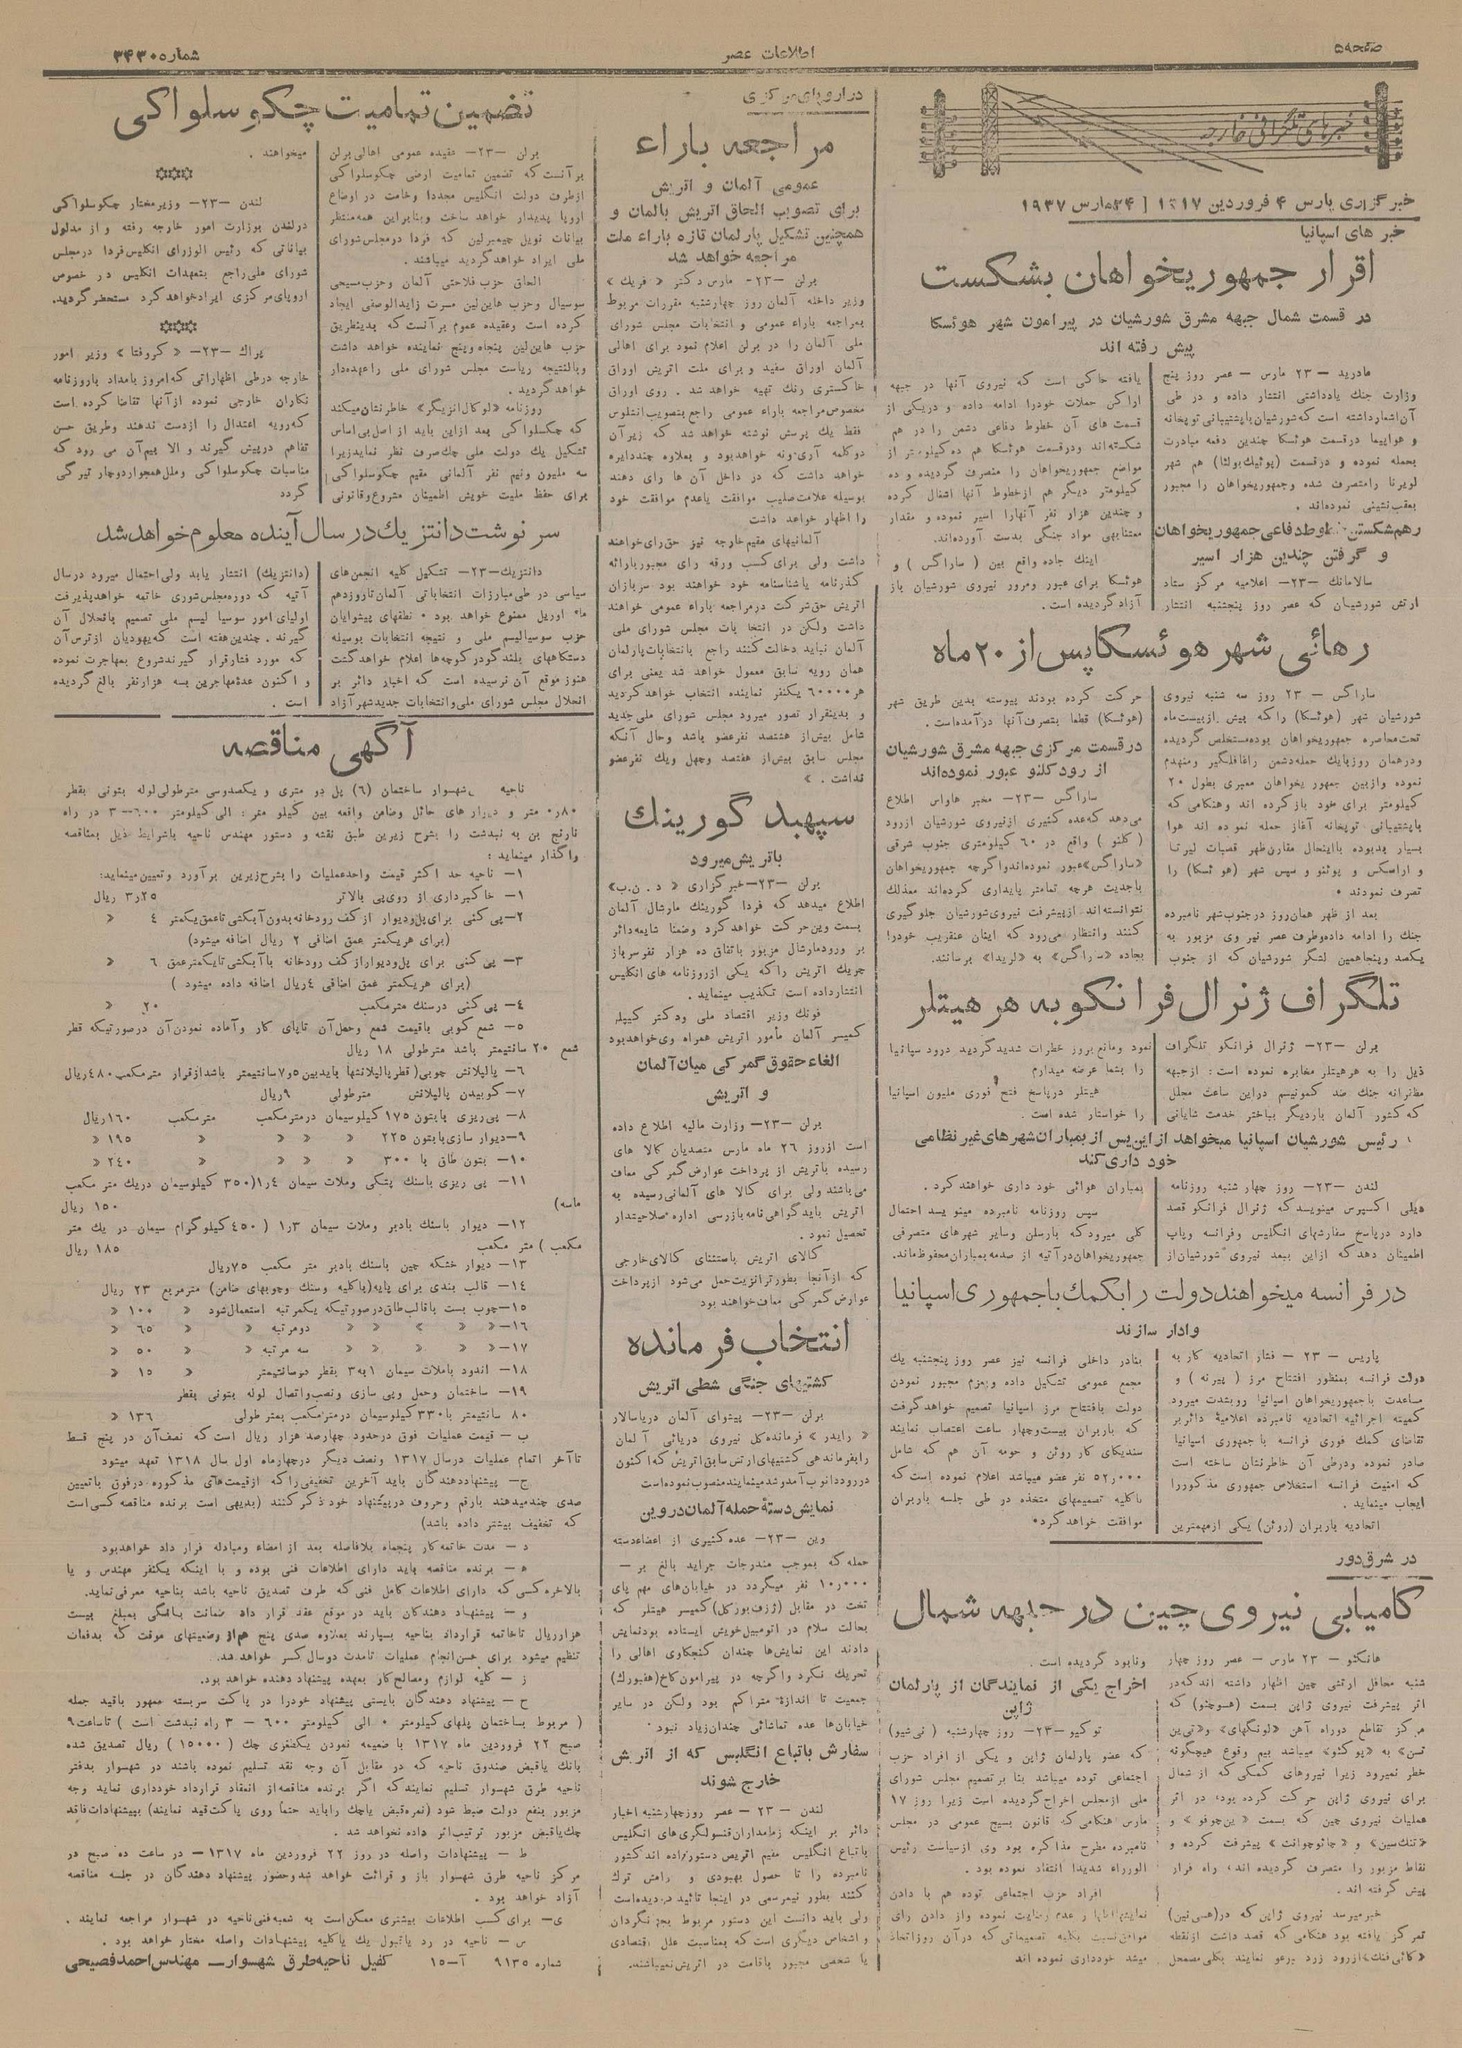 صفحه ۵
اطلاعات عصر
شماره ۳۴۳۰
خبرهای تلگرافی خارجه
خبرگزاری پارس ۴ فروردین ۱۳۱۷ [ ۲۴ مارس ۱۹۳۷
خبر های اسپانیا
اقرار جمهوریخواهان بشکست
در قسمت شمال جبهه مشرق شورشیان در پیرامون شهر هوئسکا
پیش رفته اند
مادرید – ۲۳ مارس – عصر روز پنج
وزارت جنك یادداشتی انتشار داده و در طی
آن اشعار داشته است که شورشیان با پشتیبانی توپخانه
و هواپیما در قسمت هوئسکا چندین دفعه مبادرت
بحمله نموده و در قسمت (پوئیك بولئا) هم شهر
لویرنا را متصرف شده و جمهوریخواهان را مجبور
بعقب نشینی نموده اند.
درهم شکستن خطوط دفاعی جمهوریخواهان
و گرفتن چندین هزار اسیر
سالامانك –۲۳– اعلامیه مرکز ستاد
ارتش شورشیان که عصر روز پنجشنبه انتشار
یافته حاکی است که نیروی آنها در جبهه
اراگن حملات خودرا ادامه داده و در یکی از
قسمت های آن خطوط دفاعی دشمن را در هم
شکسته اند و در قسمت هوئسکا هم ده کیلومتر از
مواضع جمهوریخواهان را متصرف گردیده و ده
کیلومتر دیگر هم از خطوط آنها اشغال کرده
و چندین هزار نفر آنهارا اسیر نموده و مقدار
معتنابهی مواد جنگی بدست آورده اند.
اینك جاده واقع بین ( ساراگس ) و
هوئسکا برای عبور و مرور نیروی شورشیان باز
آزاد گردیده است.
رهائی شهر هوئسکا پس از ۲۰ ماه
ساراگس – ۲۳ روز سه شنبه نیروی
شورشیان شهر (هوئسکا) را که پیش از بیست ماه
تحت محاصره جمهوریخواهان بوده مستخلص گردیده
و در همان روز بایك حمله دشمن را غافلگیر و منهدم
نموده و از بین جمهور یخواهان معبری بطول ۲۰
کیلومتر برای خود باز کرده اند و هنگامی که
با پشتیبانی توپخانه آغاز حمله نموده اند هوا
بسیار بد بوده با اینحال مقارن ظهر قصبات لیرتا
و اراسکس و یوئنو و سپس شهر (هو ئسکا) را
تصرف نمودند •
بعد از ظهر همان روز در جنوب شهر نامبرده
جنك را ادامه داده و طرف عصر نیر وی مزبور به
یکصد و پنجاهمین لشگر شورشیان که از جنوب
حرکت کرده بودند پیوسته بدین طریق شهر
(هوئسکا) قطعا بتصرف آنها در آمده است.
در قسمت مرکزی جبهه مشرق شورشیان
از رود کلنو عبور نموده اند
ساراگس –۲۳– مخبر هاواس اطلاع
می دهد که عده کثیری از نیروی شورشیان از رود
( کلنو ) واقع در ۶۰ کیلومتری جنوب شرقی
«ساراگس» عبور نموده اند و اگرچه جمهوریخواهان
با جدیت هرچه تمامتر پایداری کرده اند معذلك
نتوانسته اند از پیشرفت نیروی شورشیان جلوگیری
کنند و انتظار می رود که اینان عنقریب خودرا
بجاده «ساراگس» به «لریدا» برسانند.
تلگراف ژنرال فرانکو به هر هیتلر
برلن –۲۳– ژنرال فرانکو تلگراف
ذیل را به هر هیتلر مخابره نموده است : از جبهه
مظفرانه جنك ضد کمونیسم در این ساعت مجلل
که کشور آلمان بار دیگر بباختر خدمت شایانی
نمود و مانع بروز خطرات شدید گردید درود سپانیا
را بشما عرضه میدارم
هیتلر در پاسخ فتح فوری ملیون اسپانیا
را خواستار شده است .
رئیس شورشیان اسپانیا میخواهد از این پس از بمباران شهر های غیر نظامی
خود داری کند
لندن –۲۳– روز چهار شنبه روزنامه
دیلی اکسپرس مینویسد که ژنرال فرانکو قصد
دارد در پاسخ سفارشهای انگلیس و فرانسه و پاپ
اطمینان دهد که از این ببعد نیروی شورشیان از
بمباران هوائی خود داری خواهند کرد .
سپس روزنامه نامبرده مینو یسد احتمال
کلی میرود که بارسلن و سایر شهرهای متصرفی
جمهوریخواهان در آتیه از صدمه بمباران محفوظ ماند.
در فرانسه میخواهند دولت را بکمك با جمهوری اسپانیا
وادار سازند
پاریس – ۲۳ – فشار اتحادیه کار به
دولت فرانسه بمنظور افتتاح مرز ( پیرنه ) و
مساعدت با جمهوریخواهان اسپانیا رو بشدت میرود
کمیته اجرائیه اتحادیه نامبرده اعلامیهٔ دائر بر
تقاضای کمك فوری فرانسه با جمهوری اسپانیا
صادر نموده و در طی آن خاطر نشان ساخته است
که امنیت فرانسه استخلاص جمهوری مذکور را
ایجاب مینماید.
اتحادیه باربران (روئن) یکی از مهمترین
بنادر داخلی فرانسه نیز عصر روز پنجشنبه یك
مجمع عمومی تشکیل داده و بعزم مجبور نمودن
دولت بافتتاح مرز اسپانیا تصمیم خواهد گرفت
که باربران بیست و چهار ساعت اعتصاب نمایند
سندیکای کار روئن و حومه آن هم که شامل
۵۲٫۰۰۰ نفر عضو میباشد اعلام نموده است که
با کلیه تصمیمهای متخذه در طی جلسه باربران
موافقت خواهد کرد•
در شرق دور
کامیابی نیروی چین در جبهه شمال
هانکئو – ۲۳ مارس – عصر روز چهار
شنبه محافل ارتشی چین اظهار داشته اند که در
اثر پیشرفت نیروی ژاپن بسمت (هسوچئو) که
مرکز تقاطع دوراه آهن «لونگهای» و «تی ین
تسن» به «پوکئو» میباشد بیم وقوع هیچگونه
خطر نمیرود زیرا نیروهای کمکی که از شمال
برای نیروی ژاپن حرکت کرده بود، در اثر
عملیات نیروی چین که بسمت «ین چوفو» و
«تنك سین» و «چائوچوانت» پیشرفت کرده و
نقاط مزبور را متصرف گردیده اند، راه فرار
پیش گرفته اند .
خبر میرسد نیروی ژاپن که در(هسی نین)
تمرکز یافته بود هنگامی که قصد داشت از نقطه
«کائی فنك» از رود زرد عبور نمایند بکلی مضمحل
و نابود گردیده است .
اخراج یکی از نمایندگان از پارلمان
ژاپن
توکیو –۲۳– روز چهارشنبه (نی شیو)
که عضو پارلمان ژاپن و یکی از افراد حزب
اجتماعی توده میباشد بنا بر تصمیم مجلس شورای
ملی از مجلس اخراج گردیده است زیرا روز ۱۷
مارس هنگامی که قانون بسیج عمومی در مجلس
نامبرده مطرح مذاکره بود وی از سیاست رئیس
الوزراء شدیدا انتقاد نموده بود .
افراد حزب اجتماعی توده هم با دادن
میشد خودداری نموده اند
در اروپای مرکزی
مراجعه باراء
عمومی آلمان و اتریش
برای تصویب الحاق اتریش بالمان و
همچنین تشکیل پارلمان تازه باراء ملت
مراجعه خواهد شد
برلن –۲۳– مارس دکتر « فریك »
وزیر داخله آلمان روز چهارشنبه مقررات مربوط
بمراجعه باراء عمومی و انتخابات مجلس شورای
ملی آلمان را در برلن اعلام نمود برای اهالی
آلمان اوراق سفید و برای ملت اتریش اوراق
خاکستری رنك تهیه خواهد شد . روی اوراق
مخصوص مراجعه باراء عمومی راجع بتصویب انشلوس
فقط یك پرسش نوشته خواهد شد که زیر آن
دو کلمه آری و نه خواهد بود و بعلاوه چند دایره
خواهد داشت که در داخل آن ها رای دهند
بوسیله علامت صلیب موافقت یا عدم موافقت خود
را اظهار خواهد داشت
آلمانیهای مقیم خارجه نیز حق رای خواهند
داشت ولی برای کسب ورقه رای مجبور بارائه
گذرنامه یا شناسنامه خود خواهند بود سربازان
اتریش حق شرکت در مراجعه باراء عمومی خواهند
داشت ولکن در انتخابات مجلس شورای ملی
آلمان نباید دخالت کنند راجع بانتخابات پارلمان
همان رویه سابق معمول خواهد شد یعنی برای
هر ۶۰۰۰۰ یکنفر نماینده انتخاب خواهد گردید
و بدینقرار تصور میرود مجلس شورای ملی جدید
شامل بیش از هشتصد نفر عضو باشد و حال آنکه
مجلس سابق بیش از هفتصد و چهل و یك نفر عضو
نداشت . »
سپهبد گورینك
باتریش میرود
برلن –۲۳– خبرگزاری « د . ن.ب»
اطلاع میدهد که فردا گورینك مارشال آلمان
بسمت وین حرکت خواهد کرد و ضمنا شایعه دائر
بر ورود مارشال مزبور باتفاق ده هزار نفر سرباز
چریك اتریش را که یکی از روزنامه های انگلیس
انتشار داده است تکذیب مینماید.
فونك وزیر اقتصاد ملی و دکتر کپلر
کمیسر آلمان مأمور اتریش همراه وی خواهد بود
الغاء حقوق گمرکی میان آلمان
و اتریش
برلن –۲۳– وزارت مالیه اطلاع داده
است از روز ۲۶ ماه مارس متصدیان کالا های
رسیده باتریش از پرداخت عوارض گمرکی معاف
می باشند ولی برای کالا های آلمانی رسیده به
اتریش باید گواهی نامه بازرسی اداره صلاحیتدار
تحصیل نمود .
کالای اتریش باستثنای کالای خارجی
که از آنجا بطور ترانزیت حمل می شود از پرداخت
عوارض گمرکی معاف خواهند بود
انتخاب فرمانده
کشتیهای جنگی شطی اتریش
برلن –۲۳– پیشوای آلمان دریا سالار
« رایدر » فرمانده کل نیروی دریائی آلمان
را بفرماندهی کشتیهای ارتش سابق اتریش که اکنون
در رود دانوب آمد و شد مینمایند منصوب نموده است
نمایش دستهٔ حمله آلمان در وین
وین –۲۳– عده کثیری از اعضاء دسته
حمله که بموجب مندرجات جراید بالغ بر –
۱۰٫۰۰۰ نفر میگردد در خیابان های مهم پای
تخت در مقابل (ژزف بورکل) کمیسر هیتلر که
بحالت سلام در اتومبیل خویش ایستاده بود نمایش
دادند این نمایش ها چندان کنجکاوی اهالی را
تحریك نکرد و اگرچه در پیرامون کاخ (هفبورك)
جمعیت تا اندازهٔ متراکم بود ولکن در سایر
خیابان ها عده تماشائی چندان زیاد نبود •
سفارش باتباع انگلیس که از اتریش
خارج شوند
لندن – ۲۳ – عصر روز چهارشنبه اخبار
دائر بر اینکه زمامداران قنسولگری های انگلیس
باتباع انگلیس مقیم اتریش دستور داده اند کشور
نامبرده را تا حصول بهبودی و رامش ترك
کنند بطور نیم رسمی در اینجا تائید گردیده است
ولی باید دانست این دستور مربوط بجهانگردان
و اشخاص دیگری است که بمناسبت علل اقتصادی
یا شخصی مجبور باقامت در اتریش نمیباشند.
تضمین تمامیت چکو سلواکی
برلن –۲۳– عقیده عمومی اهالی برلن
بر آنست که تضمین تمامیت ارضی چکوسلواکی
از طرف دولت انگلیس مجددا وخامت در اوضاع
اروپا پدیدار خواهد ساخت و بنابراین همه منتظر
بیانات نویل چیمبرلین که فردا در مجلس شورای
ملی ایراد خواهد گردید میباشند .
الحاق حزب فلاحتی آلمان و حزب مسیحی
سوسیال و حزب هاین لین مسرت زاید الوصفی ایجاد
کرده است و عقیده عموم بر آنست که بدینطریق
حزب هاین لین پنجاه و پنج نماینده خواهد داشت
و بالنتیجه ریاست مجلس شورای ملی را عهده دار
خواهد گردید .
روزنامه «لوکال انزیگر» خاطر نشان میکند
که چکسلواکی بعد از این باید از اصل بی اساس
تشکیل یك دولت ملی چك صرف نظر نماید زیرا
سه ملیون و نیم نفر آلمانی مقیم چکوسلواکی
برای حفظ ملیت خویش اطمینان مشروع و قانونی
میخواهند .
لندن –۲۳– وزیر مختار چکوسلواکی
در لندن بوزارت امور خارجه رفته و از مدلول
بیاناتی که رئیس الوزرای انگلیس فردا در مجلس
شورای ملی راجع بتعهدات انگلیس در خصوص
اروپای مرکزی ایراد خواهد کرد مستحضر گردید.
پراك –۲۳– «کروفتا» وزیر امور
خارجه در طی اظهاراتی که امروز بامداد با روزنامه
نگاران خارجی نموده از آنها تقاضا کرده است
که رویه اعتدال را از دست ندهند و طریق حسن
تفاهم در پیش گیرند و الا بیم آن می رود که
مناسبات چکوسلواکی و ملل همجوار دوچار تیرگی
گردد
سرنوشت دانتزیك در سال آینده معلوم خواهد شد
دانتزیك –۲۳– تشکیل کلیه انجمن های
سیاسی در طی مبارزات انتخاباتی آلمان تا روز دهم
ماه اوریل ممنوع خواهد بود • نطقهای پیشوایان
حزب سوسیالیسم ملی و نتیجه انتخابات بوسیله
دستگاههای بلند گو در کوچه ها اعلام خواهد گشت
هنوز موقع آن نرسیده است که اخبار دائر بر
انحلال مجلس شورای ملی و انتخابات جدید شهر آزاد
(دانتزیك) انتشار یابد ولی احتمال میرود در سال
آتیه که دوره مجلس شوری خاتمه خواهد پذیرفت
اولیای امور سوسیا لیسم ملی تصمیم بانحلال آن
گیرند. چندین هفته است که یهودیان از ترس آن
که مورد فشار قرار گیرند شروع بمهاجرت نموده
و اکنون عدهٔ مهاجرین بسه هزار نفر بالغ گردیده
است .
آگهی مناقصه
ناحیه شهسوار ساختمان (۶) پل دو متری و یکصد و سی متر طولی لوله بتونی بقطر
۰٫۸۰ متر و دیوار های حائل و ضامن واقعه بین کیلو متر : الی کیلومتر ۶۰۰–۳ در راه
نارنج بن به نبدشت را بشرح زیرین طبق نقشه و دستور مهندس ناحیه با شرایط ذیل بمناقصه
واگذار مینماید :
۱– ناحیه حد اکثر قیمت واحد عملیات را بشرح زیرین برآورد و تعیین مینماید:
۱– خاکبرداری از روی پی بالاتر ۳٫۲۵ ریال
۲– پی کنی برای پل و دیوار از کف رودخانه بدون آبکشی تا عمق یکمتر ۴ «
(برای هر یکمتر عمق اضافی ۲ ریال اضافه میشود)
۳– پی کنی برای پل و دیوار از کف رودخانه با آبکشی تا یکمتر عمق ۶ «
(برای هر یکمتر عمق اضافی ۴ ریال اضافه داده میشود )
۴– پی کنی در سنك متر مکعب ۲۰ «
۵– شمع کوبی با قیمت شمع و حمل آن تا پای کار و آماده نمودن آن در صورتیکه قطر
شمع ۲۰ سانتیمتر باشد متر طولی ۱۸ ریال
۶– پالپلانش چوبی( قطر پالپلانشها باید بین ۵ و ۷ سانتیمتر باشد از قرار متر مکعب ۴۸۰ ریال
۷– کوبیدن پالپلانش متر طولی ۹ ریال
۸– پی ریزی با بتون ۱۷۵ کیلو سیمان در متر مکعب متر مکعب ۱۶۰ ریال
۹– دیوار سازی با بتون ۲۲۵ « « « « ۱۹۵ «
۱۰– بتون طاق با ۳۰۰ « « « « ۲۴۰ «
۱۱– پی ریزی با سنك پتکی و ملات سیمان ۱٫۴ (۳۵۰ کیلو سیمان در یك متر مکعب
ماسه) ۱۵۰ ریال
۱۲– دیوار با سنك بادبر و ملات سیمان ۱٫۳ ( ۴۵۰ کیلوگرام سیمان در یك متر
مکعب ) متر مکعب ۱۸۵ ریال
۱۳– دیوار خشکه چین با سنك بادبر متر مکعب ۷۵ ریال
۱۴– قالب بندی برای پایه (با کلیه و سنك و چوبهای ضامن) متر مربع ۲۳ ریال
۱۵– چوب بست با قالب طاق در صورتیکه یکمرتبه استعمال شود « ۱۰۰ «
۱۶– « « « « « دو مرتبه « « ۶۵ «
۱۷– « « « « « سه مرتبه « « ۵۰ «
۱۸– اندود با ملات سیمان ۱ به ۳ بقطر دو سانتیمتر « ۱۵ «
۱۹– ساختمان و حمل و پی سازی و نصب و اتصال لوله بتونی بقطر
۸۰ سانتیمتر با ۳۳۰ کیلو سیمان در متر مکعب بمتر طولی ۱۳۶ «
ب – قیمت عملیات فوق در حدود چهارصد هزار ریال است که نصف آن در پنج قسط
تا آخر اتمام عملیات در سال ۱۳۱۷ و نصف دیگر در چهار ماه اول سال ۱۳۱۸ تعهد میشود
ج– پیشنهاد دهندگان باید آخرین تخفیفی را که از قیمت های مذکوره در فوق با تعیین
صدی چند میدهند با رقم و حروف در پیشنهاد خود ذکر کنند (بدیهی است برنده مناقصه کسی است
که تخفیف بیشتر داده باشد)
د – مدت خاتمه کار پنجماه بلافاصله بعد از امضاء و مبادله قرار داد خواهد بود
ه – برنده مناقصه باید دارای اطلاعات فنی بوده و با اینکه یکنفر مهندس و یا
بالاخره کسی که دارای اطلاعات کامل فنی که طرف تصدیق ناحیه باشد بناحیه معرفی نماید.
و – پیشنهاد دهندگان باید در موقع عقد قرار داد ضمانت بانگی بمبلغ بیست
هزار ریال تا خاتمه قرارداد بناحیه بسپارند بعلاوه صدی پنج هم از وضعیتهای موقت که بدفعات
تنظیم میشود برای حسن انجام عملیات تا مدت دو سال کسر خواهد شد.
ز – کلیه لوازم و مصالح کار بعهده پیشنهاد دهنده خواهد بود.
ح – پیشنهاد دهندگان بایستی پیشنهاد خودرا در پاکت سربسته ممهور با قید جمله
( مربوط بساختمان پلهای کیلومتر ۰ الی کیلومتر ۶۰۰ – ۳ راه نبدشت است ) تا ساعت ۹
صبح ۲۲ فروردین ماه ۱۳۱۷ با ضمیمه نمودن یکفقری چك (۱۵۰۰۰) ریال تصدیق شده
بانك یا قبض صندوق ناحیه که در مقابل آن وجه نقد تسلیم نموده باشند در شهسوار بدفتر
ناحیه طرق شهسوار تسلیم نمایند که اگر برنده مناقصه از انعقاد قرارداد خودداری نماید وجه
مزبور بنفع دولت ضبط شود (نمره قبض یا چك را باید حتماً روی پاکت قید نمایند) بپیشنهادات فاقد
چك یا قبض مزبور ترتیب اثر داده نخواهد شد .
ط – پیشنهادات واصله در روز ۲۲ فروردین ماه ۱۳۱۷ – در ساعت ده صبح در
مرکز ناحیه طرق شهسوار باز و قرائت خواهد شد و حضور پیشنهاد دهندگان در جلسه مناقصه
آزاد خواهد بود .
ی– برای کسب اطلاعات بیشتری ممکن است به شعبه فنی ناحیه در شهسوار مراجعه نمایند .
س – ناحیه در رد یا قبول یك یا کلیه پیشنهادات واصله مختار خواهد بود .
شماره ۹۱۳۵ آ–۱۵ کفیل ناحیه طرق شهسوار – مهندس احمد فصیحی